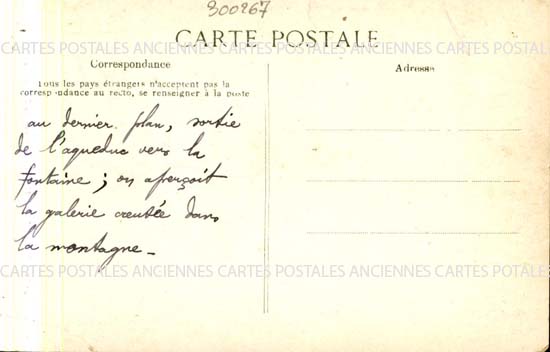 300267
CARTE POSTALE
CARTES POSTALES ANCIENNES CARTES POSTALES ANCIENNES CARTES POSTALES
Correspondance
Adresse
Tous les pays étrangers n'acceptent pas la
correspondance au recto, se renseigner à la poste
au dernier plan, sortie
de l'aqueduc vers la
fontaine ; on aperçoit
la galerie creusée dans
la montagne -
CARTES POSTALES ANCIENNES CARTES POSTALES ANCIENNES CARTES POSTALES